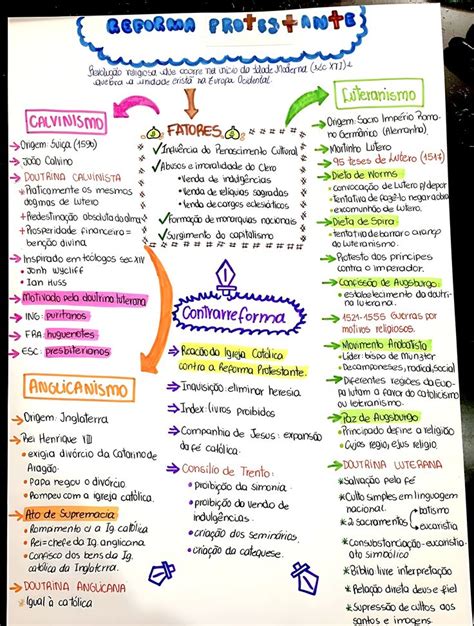 REFORMA PROTESTANTE
Revolução religiosa que ocorre no início da Idade Moderna (séc XVI) e
quebra a unidade cristã na Europa Ocidental.
CALVINISMO
→Origem: Suíça
→João Calvino
→DOUTRINA CALVINISTA
*Praticamente os mesmos
dogmas de Lutero
+Predestinação absoluta da alma
+Prosperidade financeira =
benção divina
→Inspirado em teólogos séc XIV
• John Wycliff
• Ian Huss
→Motivado pela doutrina luterana
→ING: puritanos
→FRA: huguenotes
→ESC: presbiterianos
FATORES
✓Influência do Renascimento Cultural
✓Abusos e imoralidade do Clero
•Venda de indulgências
•Venda de relíquias sagradas
•Venda de cargos eclesiáticos
✓Formação de monarquias nacionais
✓Surgimento do capitalismo
Luteranismo
→Origem: Sacro Império Roma-
no Germânico (Alemanha)
→Martinho Lutero
→95 teses de Lutero (1517)
→Dieta de Worms
convocação de Lutero p/ depor
•tentativa de fazê-lo negar
excomunhão de Lutero.
→Dieta de Spira
•tentativa de barrar o avanço
do luteranismo.
→Protesto dos príncipes
contra o imperador.
→Confissão de Augsburgo:
•estabelecimento da doutri-
na luterana.
→1521-1555 Guerras por
motivos religiosos.
→Movimento Anabatista
•Líder: bispo de Münster
•Camponeses, radical, social
→Diferentes regiões da Euro-
pa lutam a favor do catolicismo
ou luteranismo.
→Paz de Augsburgo
•Príncipado define a religião
•Cujos regio, ejus religio.
→DOUTRINA LUTERANA
*Salvação pela fé
*Culto simples em linguagem
nacional.
*2 sacramentos
batismo
eucaristia
*Consubstanciação-eucaristia
ato simbólico
*Bíblia livre interpretação
*Relação direta deus e fiel
*Supressão de cultos aos
santos e imagens
Contrarreforma
→Reação da Igreja Católica
contra a Reforma Protestante.
→Inquisição: eliminar heresia
→Index: livros proibidos
→Companhia de Jesus: expansão
da fé católica.
→Concílio de Trento:
• proibição da simonia.
• proibição da venda de
indulgências.
• criação dos seminários.
• criação da catequese.
ANGLICANISMO
→Origem: Inglaterra
→Rei Henrique VIII
• exigia divórcio da Catarina de
Aragão.
• Papa negou o divórcio
• Rompeu com a igreja católica.
→Ato de Supremacia
•Rompimento c/ a Ig católica
•Rei=chefe da Ig. anglicana
•Confisco dos bens da Ig.
católica da Inglaterra.
→DOUTRINA ANGLICANA
*Igual à católica